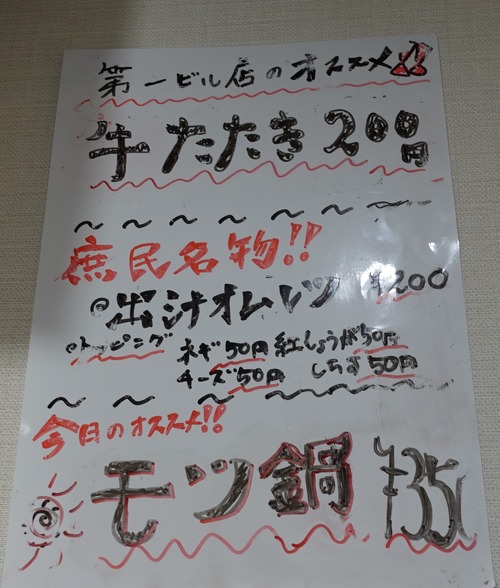 第一ビル店のオススメ!!
牛たたき200円
庶民名物!!
出汁オムレツ ¥200
トッピング ネギ50円 紅しょうが50円
チーズ50円 しらす50円
今日のオススメ!!
モツ鍋 ¥350